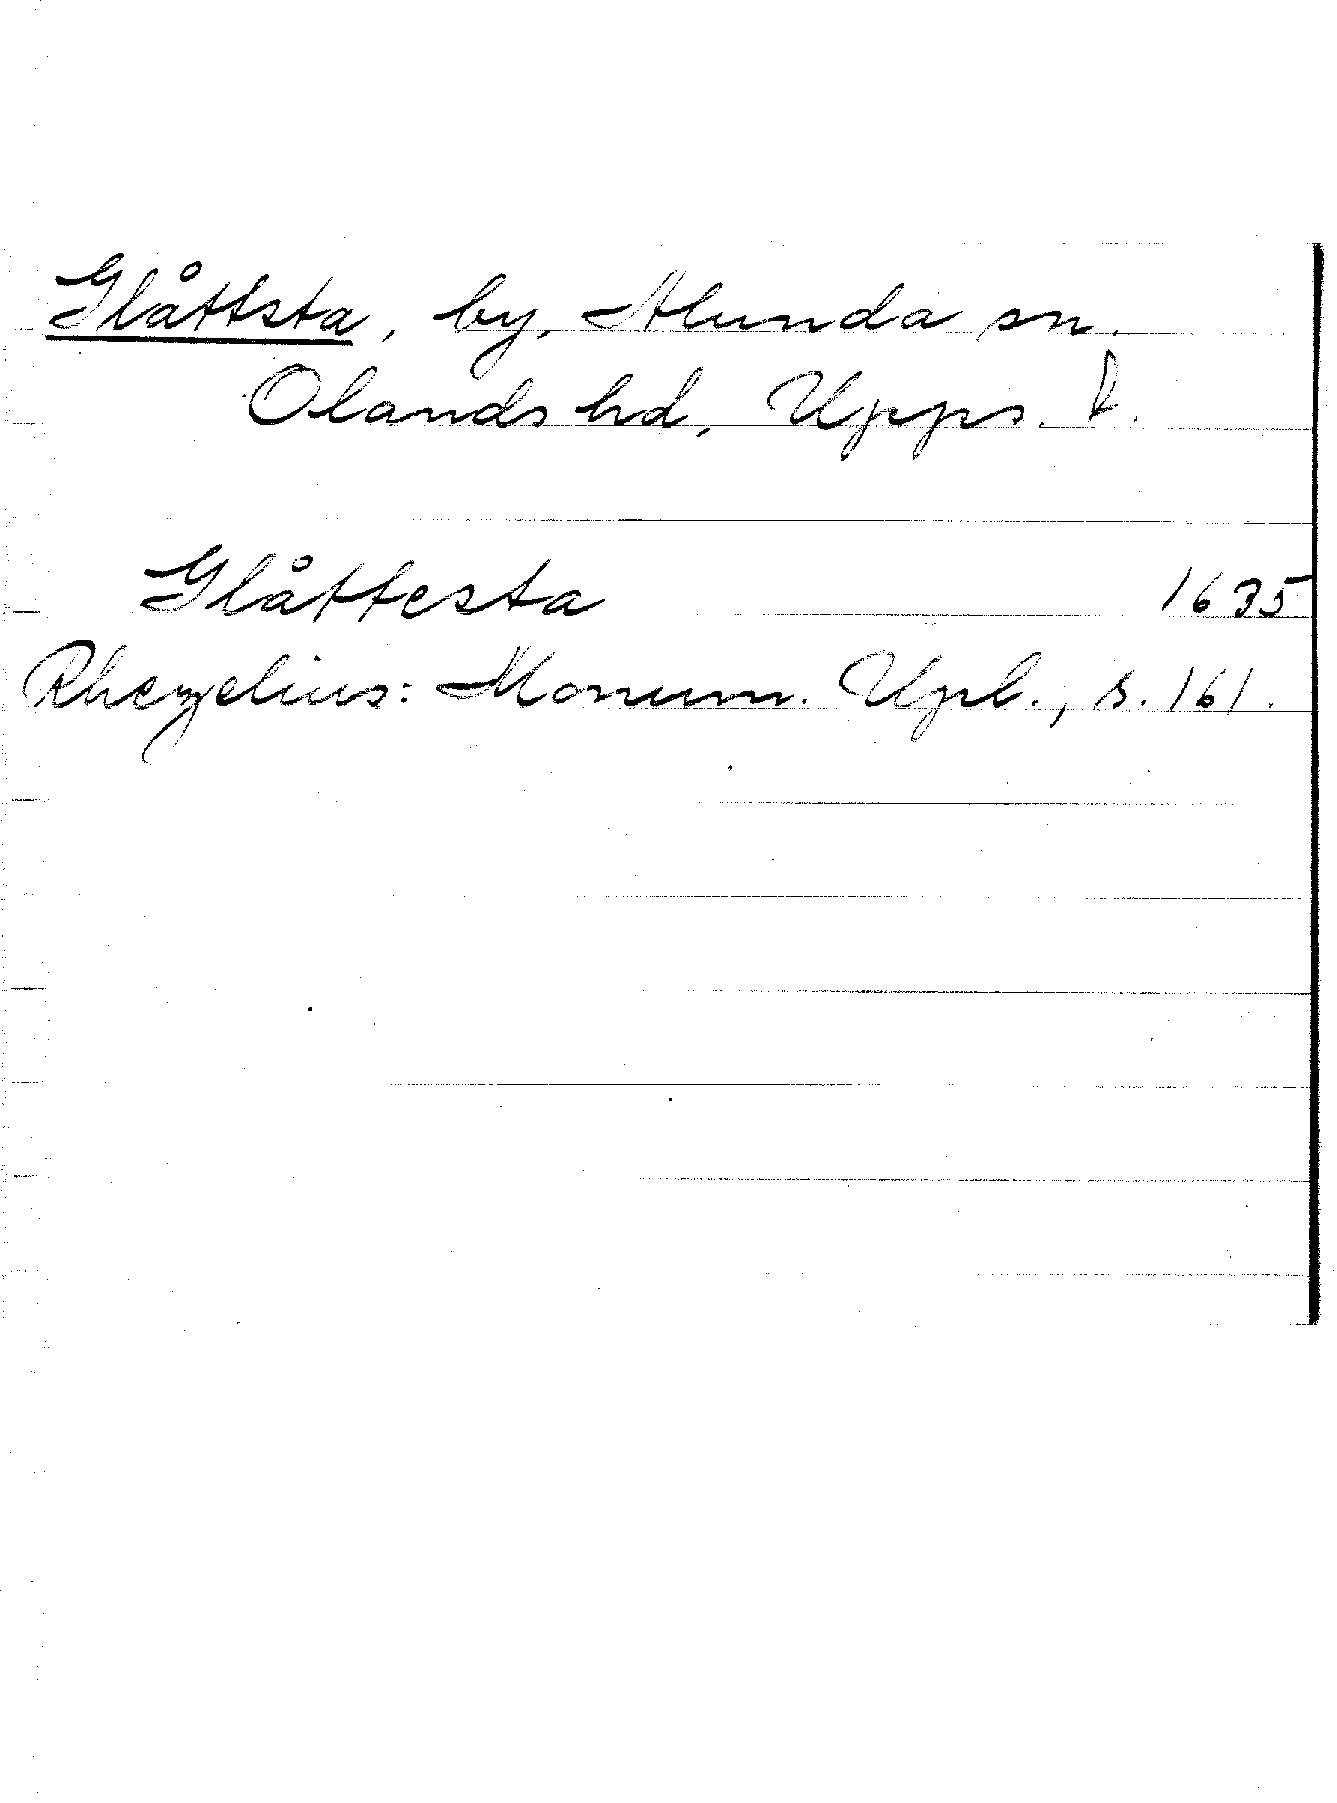 Glåttsta, by, Alunda sn.
Olands hd, Upps. l.
Glåttesta 1635
Rhezelius: Monum. Upl., s. 161.